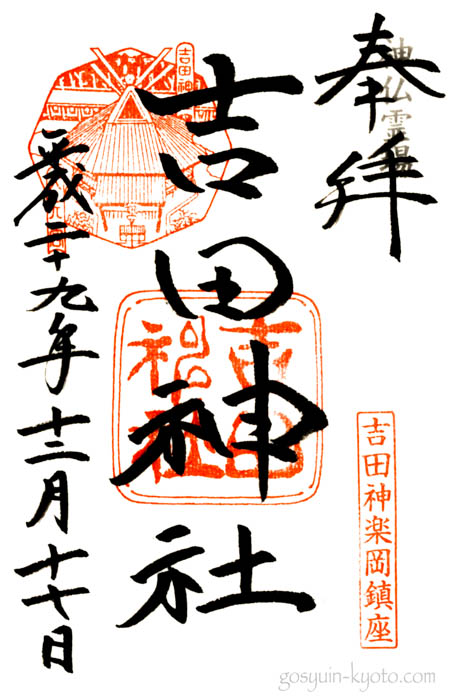 奉拝
神仏霊場
吉田神楽岡鎮座
吉田神社
吉田神社
吉田神
平成二十九年十二月十七日
gosyuin-kyoto.com